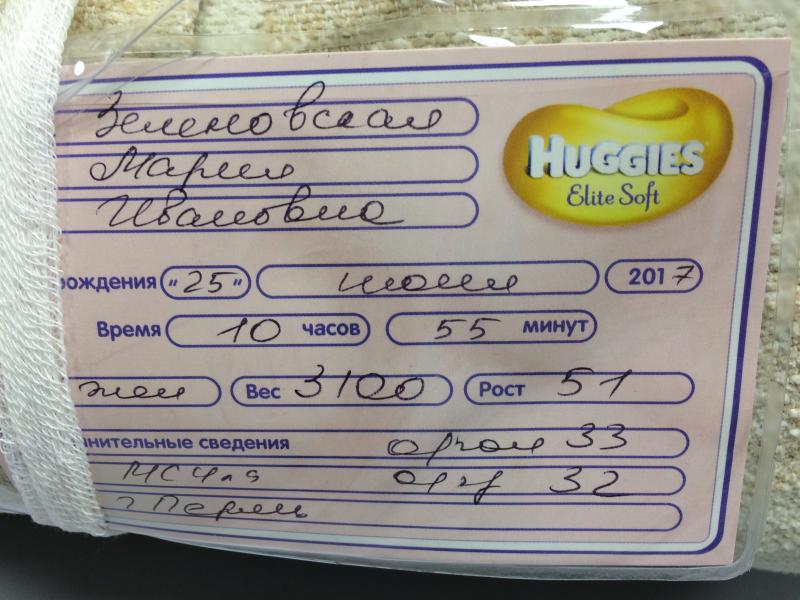 Зеленовская
Мария
Ивановна
HUGGIES
Elite Soft
рождения "25" июня 2017
Время 10 часов 55 минут
жен Вес 3100 Рост 51
нительные сведения
33
МСЧ 32
г Пермь